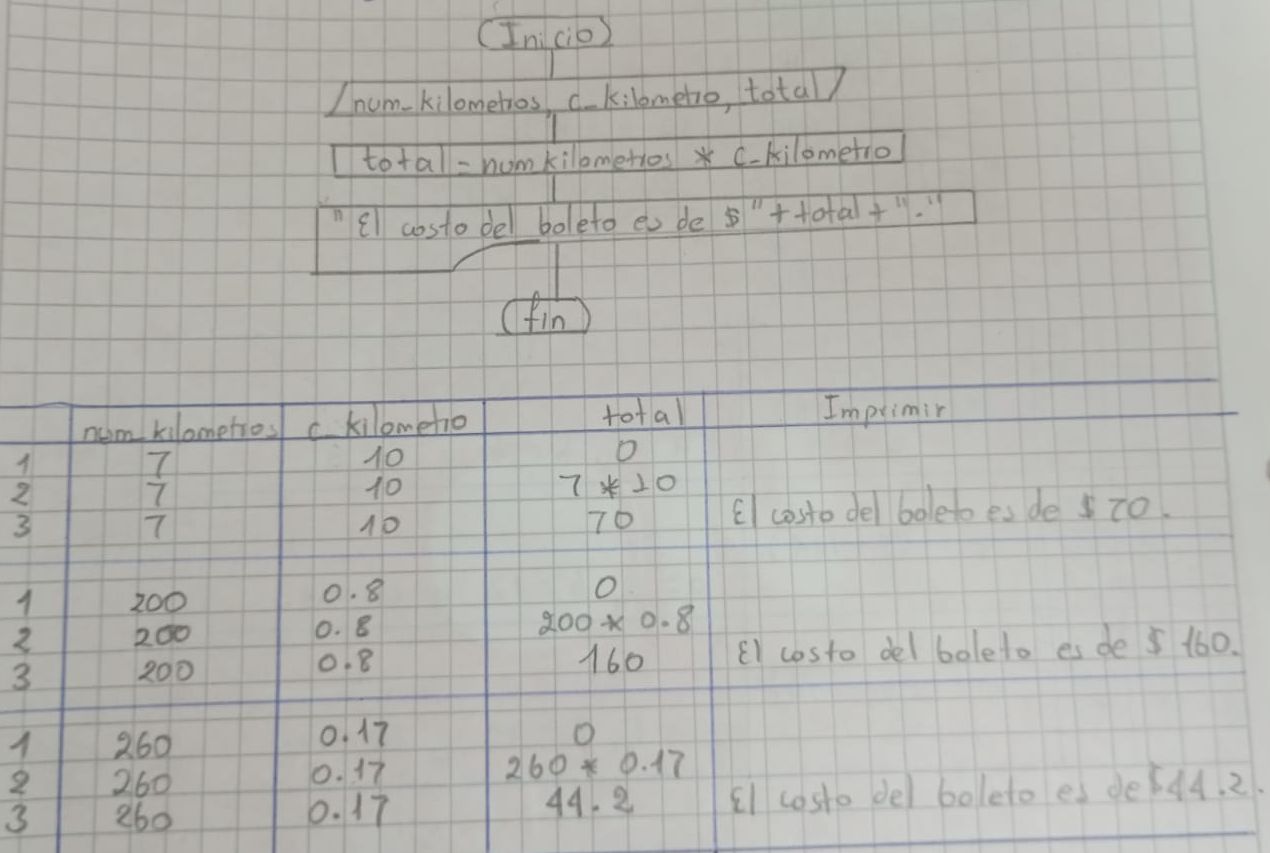 Inicio
num_kilometros, c_kilometro, total
total = num kilometros * c_kilometro
"El costo del boleto es de $" + total + "."
fin
num_kilometros c_kilometro total Imprimir
1 7 10 0
2 7 10 7 * 10
3 7 10 70 El costo del boleto es de $ 70.
1 200 0.8 0
2 200 0.8 200 * 0.8
3 200 0.8 160 El costo del boleto es de $ 160.
1 260 0.17 0
2 260 0.17 260 * 0.17
3 260 0.17 44.2 El costo del boleto es de $44.2.